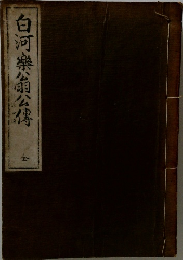 白河樂翁公傳